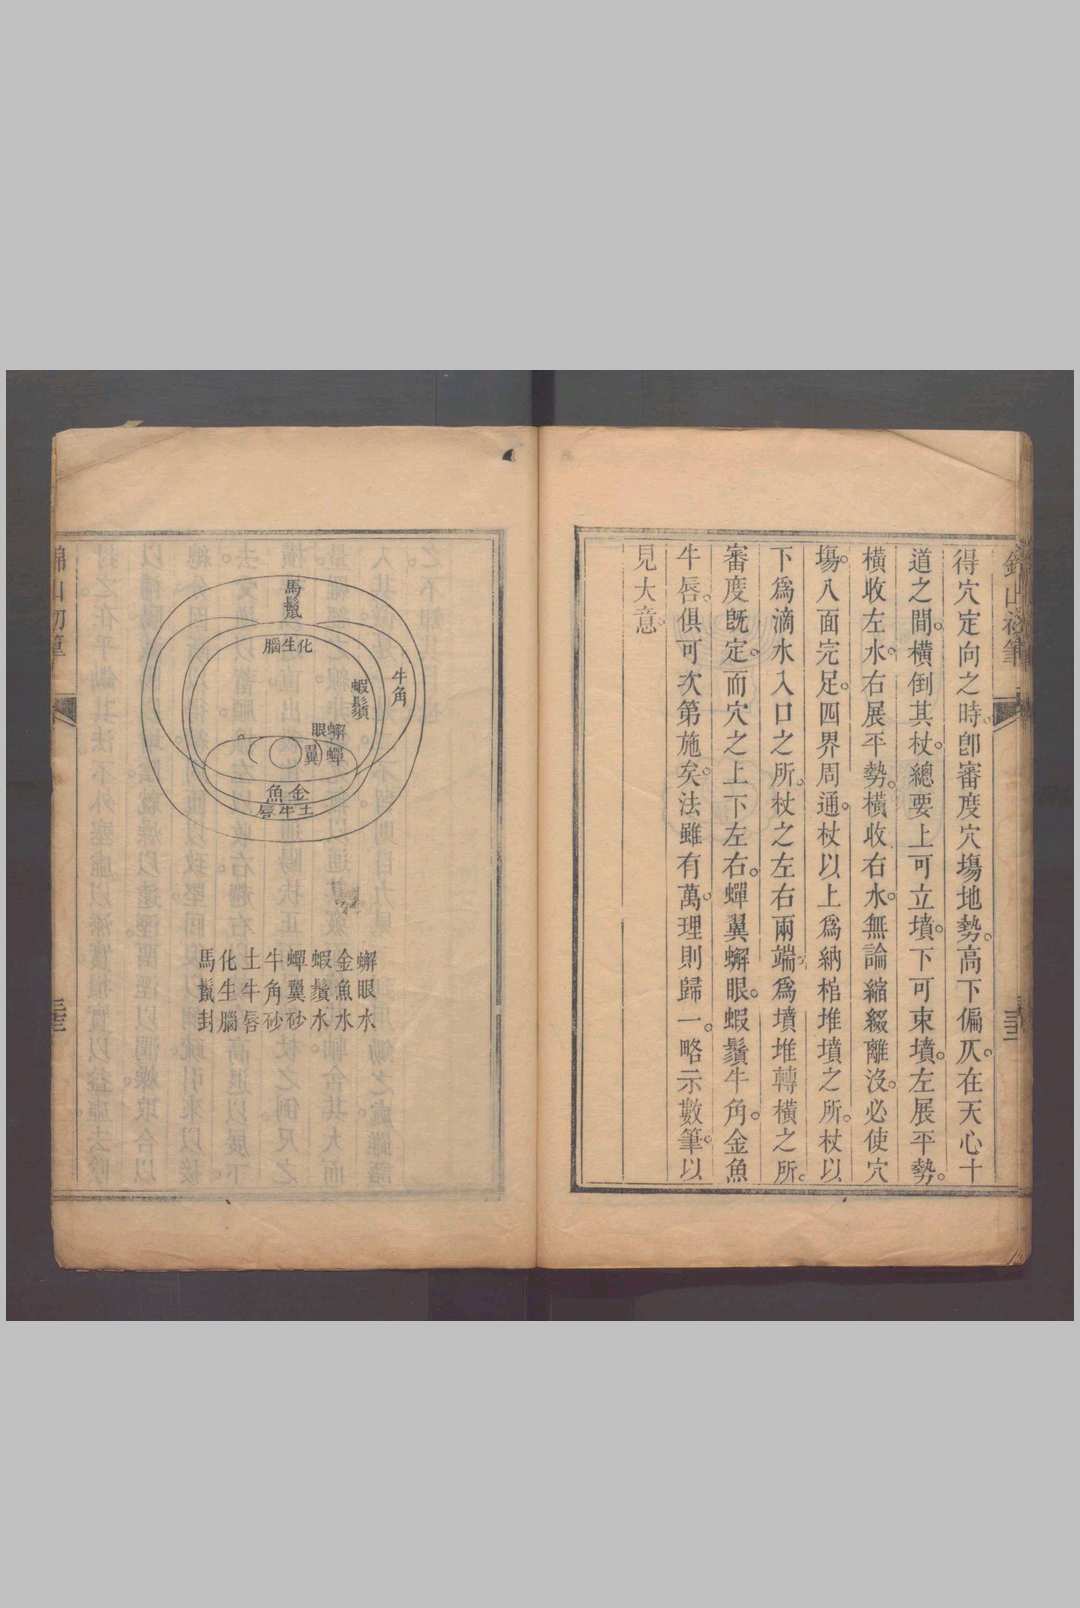 得穴定向之時。卽審度穴塲地勢。高下偏仄。在天心十
道之間。橫倒其杖。總要上可立墳。下可束墳。左展平勢。
橫收左水。右展平勢。橫收右水。無論縮綴離沒。必使穴
塲。八面完足。四界周通。杖以上爲納棺堆墳之所。杖以
下爲滴水入口之所。杖之左右兩端。爲墳堆轉橫之所。
審度旣定。而穴之上下左右。蟬翼蠏眼。蝦鬚牛角。金魚
牛唇。俱可次第施矣。法雖有萬。理則歸一。略示數筆。以
見大意。
馬鬣
化生腦
牛角
蝦鬚
蠏眼
蟬翼
金魚
土牛唇
蠏眼水
金魚水
蝦鬚水
蟬翼砂
牛角砂
土牛唇
化生腦
馬鬣封